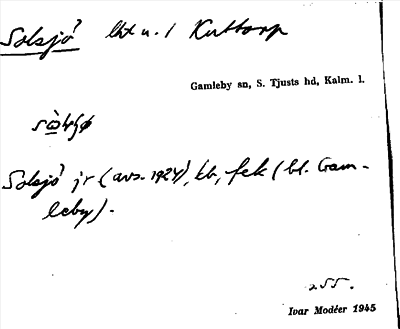 Solsjö lht u. / Kuttorp
Gamleby sn, S. Tjusts hd, Kalm. l.
Solsjö jr (avs. 1924), kb, fek (bl. Gam-
leby).
255.
Ivar Modéer 1945